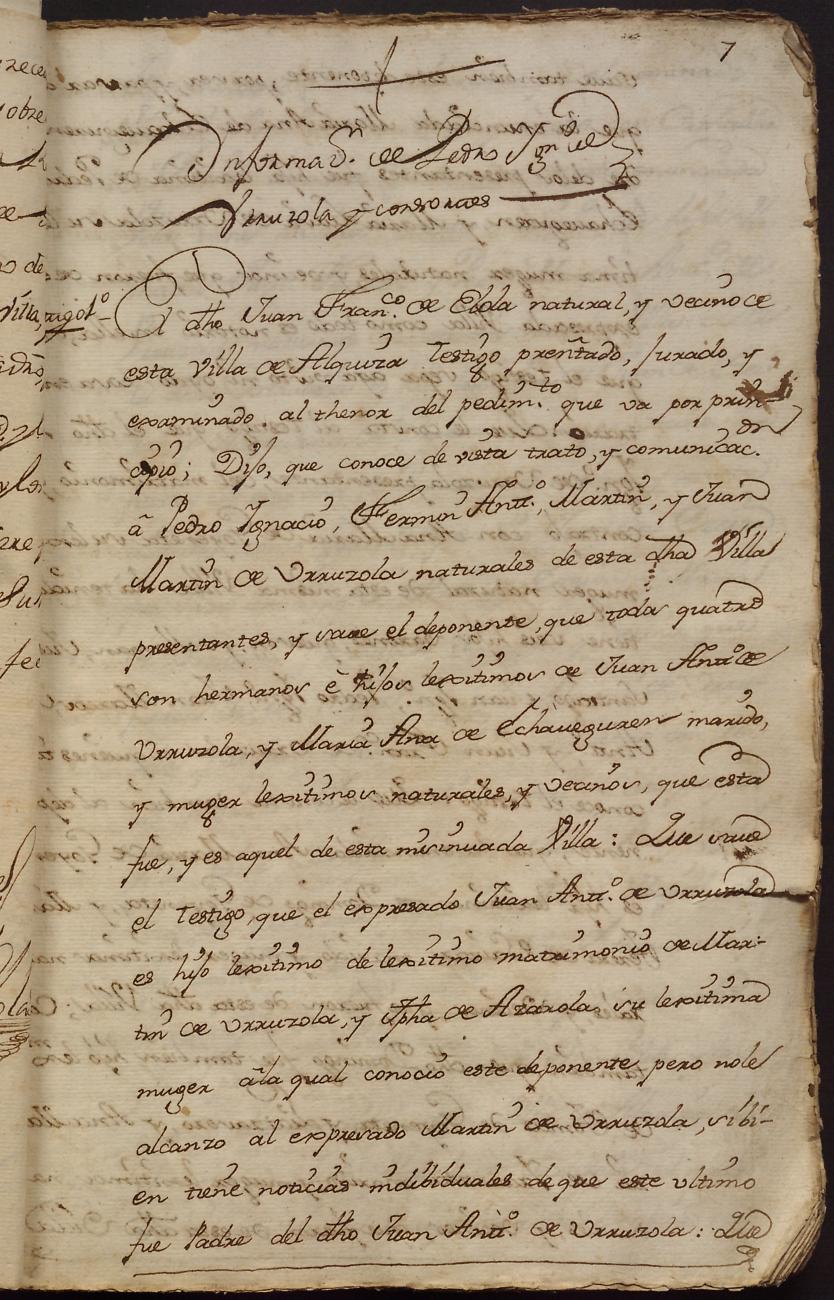 7
Informaon. de Pedro Ignº de
Urruzola y consortes
tigo 1º El dho Juan Franco. de Elola natural, y vecino de
esta Villa de Alquiza testigo preñtado, Jurado, y
examinado al thenor del pedimto. que va por prin-
cipio; Dijo, que conoce de vista trato, y comunicacon.
â Pedro Ignacio, Fermin Antto., Martin, y Juan
Martin de Urruzola naturales de esta dha Villa
presentantes, y save el deponente, que todos quatro
son hermanos è hijos lexitimos de Juan Antto. de
Urruzola, y Maria Ana de Echaveguren marido,
y muger lexitimos, naturales, y vecinos, que esta
fue, y es aquel de esta misinuada Villa: Que save
el testigo, que el expresado Juan Antto. de Urruzola
es hijo lexitimo de lexitimo matrimonio de Mar-
tin de Urruzola, y Jpha de Azarola, su lexitima
muger âla qual conocio este deponente, pero nole
alcanzo al expresado Martin de Urruzola, si bi-
en tiene noticias indibiduales de que este ultimo
fue Padre del dho Juan Antto. de Urruzola: Que